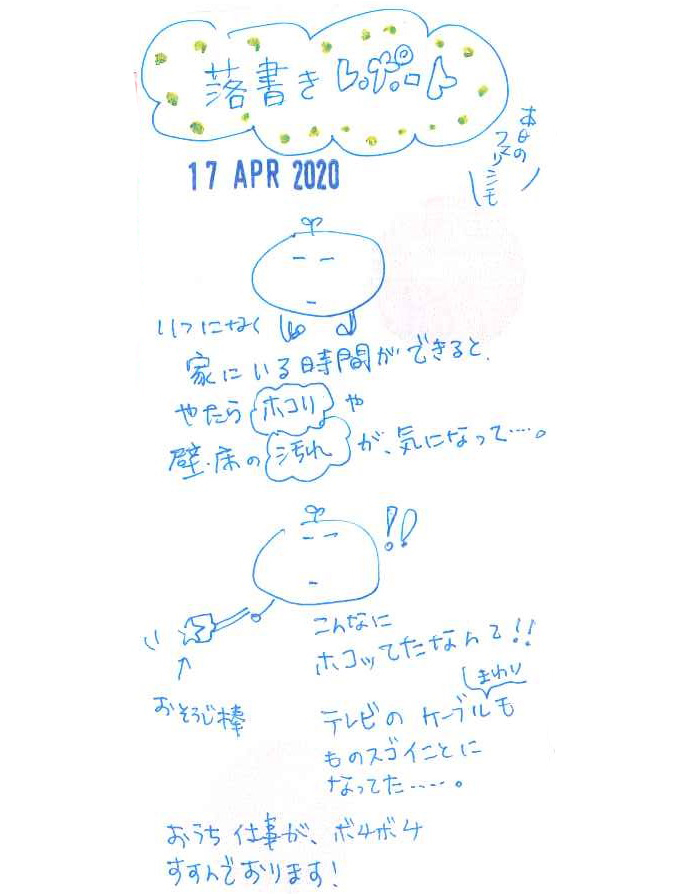 落書きレポート
本日の
17 APR 2020
いつになく
家にいる時間ができると、
やたらホコリや
壁・床の汚れが、気になって…。
!!
こんなに
ホコッてたなんて!!
おそうじ棒
まわり
テレビのケーブルも
ものスゴイことに
なってた……。
おうち仕事が、ボチボチ
すすんでおります!